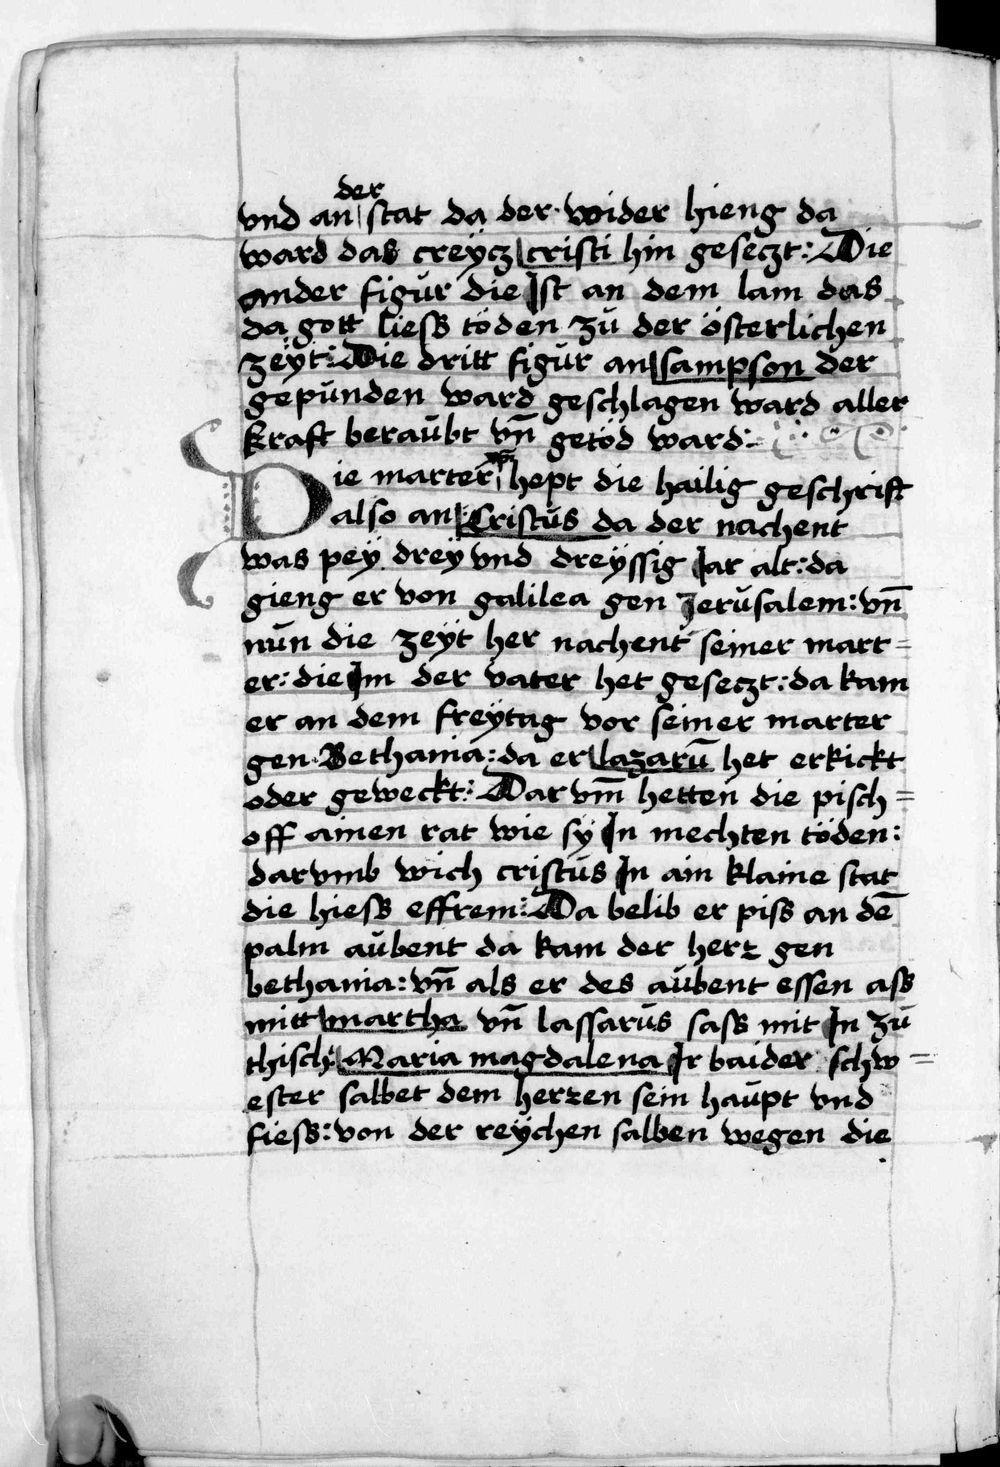 vnd an der stat da der wider hieng da
ward das creÿcz cristi hin geseczt: Die
ander figur die Jst an dem lam das
da gott liess töden zŭ der österlichen
zeÿt: Die dritt figŭr an sampson der
gepŭnden ward geschlagen ward aller
kraft beraŭbt vn̄ getöd ward:
Die marter hept die hailig geschrift
also an Cristŭs da der nachent
was peÿ dreÿ vnd dreÿssig Jar alt: da
gieng er von galilea gen Jerŭsalem: vn̄
nŭn die zeÿt her nachent seiner mart=
er: die Jm der vater het geseczt: da kam
er an dem freÿtag vor seiner marter
gen Bethania: da er lazarū het erkickt
oder geweckt: Dar vm̄ hetten die pisch=
off ainen rat wie sÿ Jn mechten töden:
darvmb wich cristŭs Jn ain klaine stat
die hiess effrem: Da belib er piss an dē
palm aŭbent da kam der herz gen
bethania: vn̄ als er des aŭbent essen ass
mitt martha vn̄ lassarŭs sass mit Jn zŭ
thisch: Maria magdalena Jr baider schw=
ester salbet dem herzen sein haŭpt vnd
fiess: von der reÿchen salben wegen die